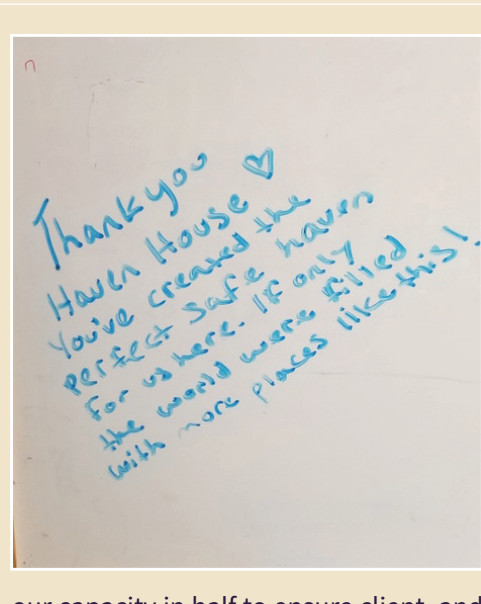 Thank you
Haven House ♡
You've created the
perfect safe haven
for us here. If only
the world were filled
with more places like this!
our capacity in half to ensure client and